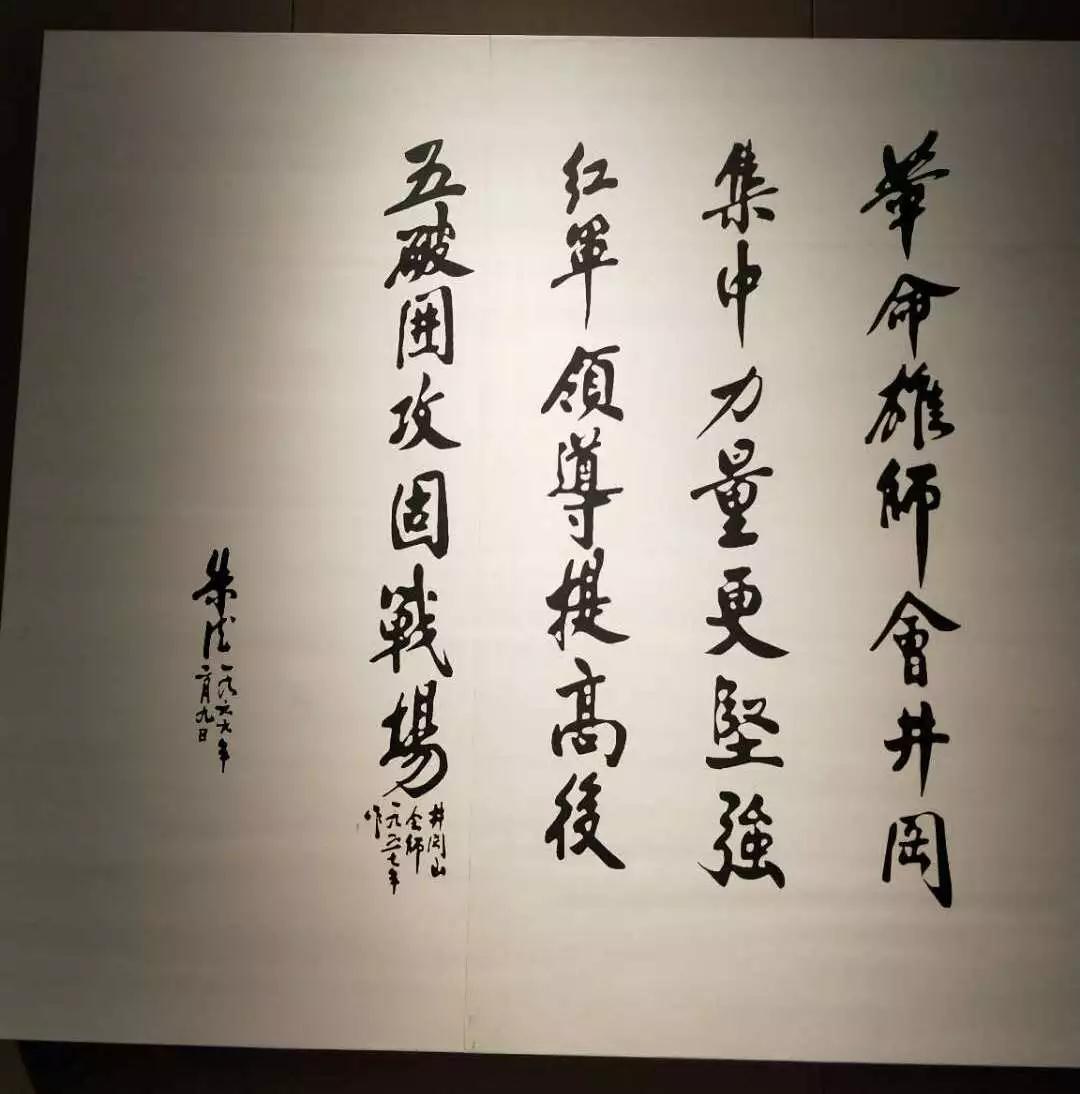 革命雄師會井岡
集中力量更堅強
红軍領導提高後
五破囲攻固戰場
井岡山
会師
一九五七年
作
朱德一九六六年
二月九日